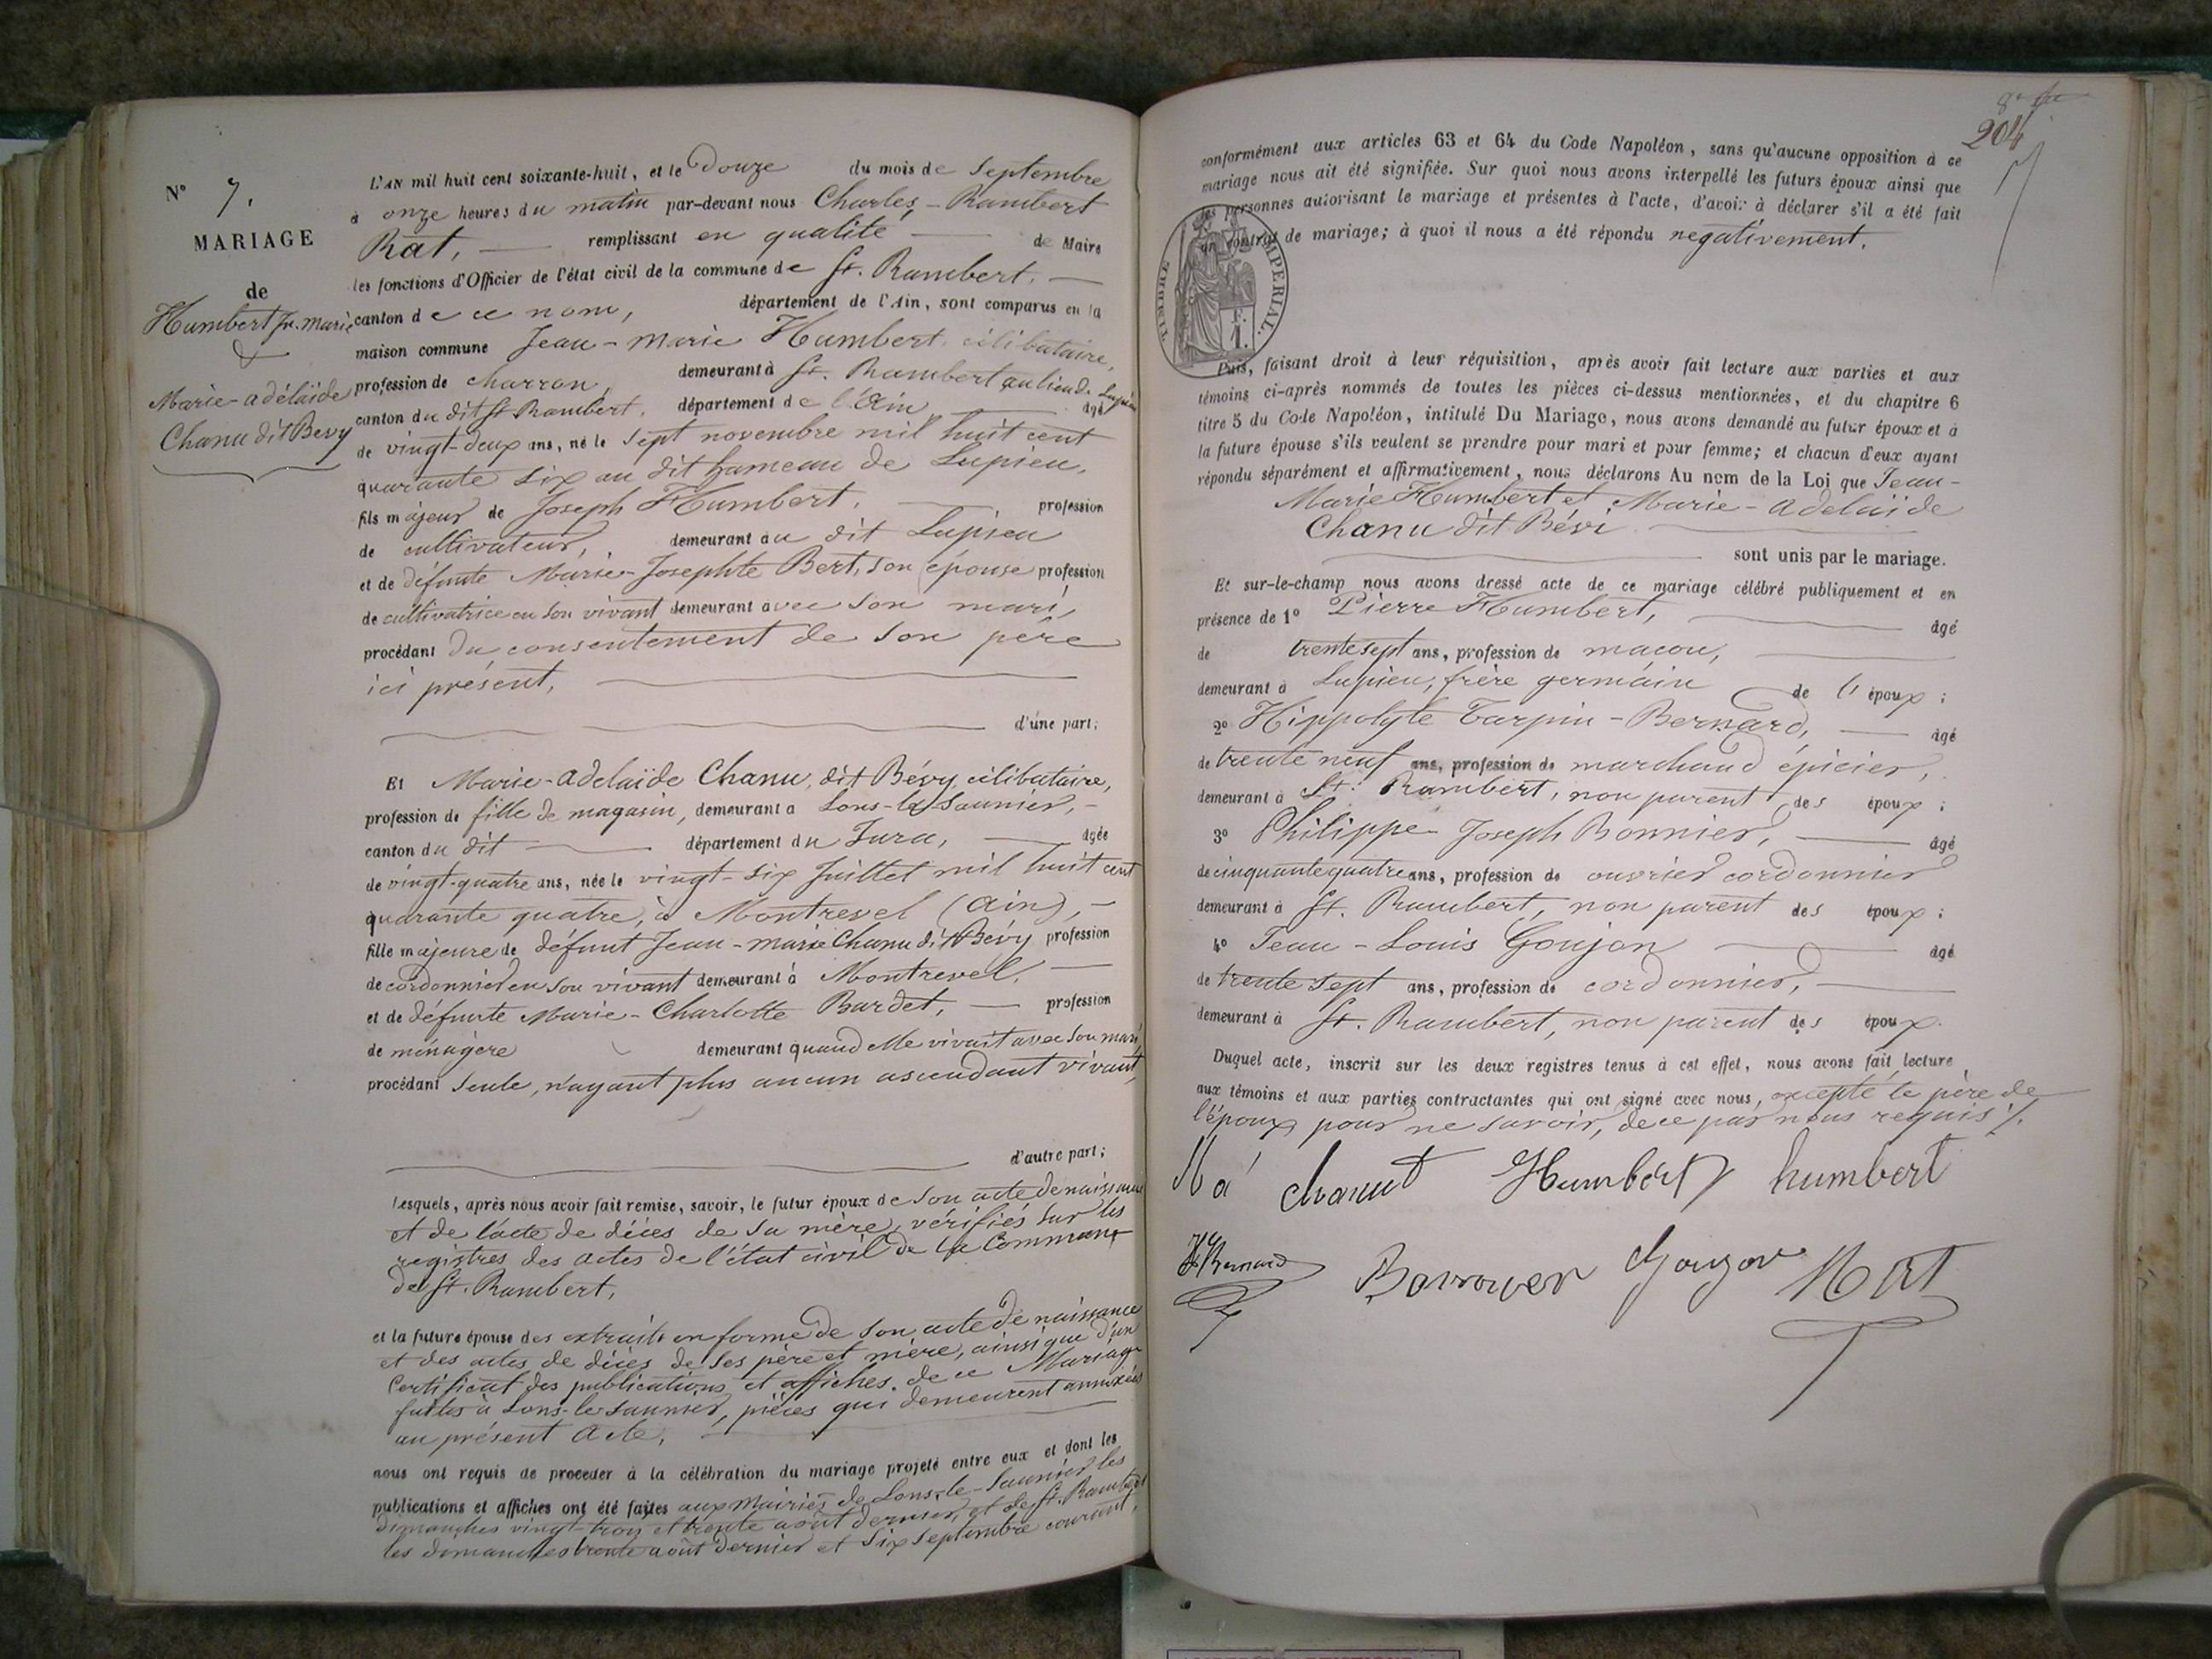 N° 7.
MARIAGE
de
Humbert Jn. Marie
&
Marie-adélaïde
Chanu dit Bevy
L'AN mil huit cent soixante-huit, et le Douze du mois de Septembre
à onze heures du matin par-devant nous Charles-Rambert
Rat, remplissant en qualité de Maire
les fonctions d'Officier de l'état civil de la commune de St. Rambert.
canton de ce nom, département de l'Ain, sont comparus en la
maison commune Jean-Marie Humbert, célibataire,
profession de charron, demeurant à St. Rambert au lieu de Lupieu
canton du dit St Rambert, département de l'Ain âgé
de vingt-deux ans, né le sept novembre mil huit cent
quarante six au dit hameau de Lupieu,
fils majeur de Joseph Humbert, profession
de cultivateur, demeurant au dit Lupieu
et de défunte Marie-Josephte Bert, son épouse profession
de cultivatrice en son vivant demeurant avec son mari,
procédant du consentement de son père
ici présent,
d'une part;
Et Marie-adelaïde Chanu, dit Bévy, célibataire,
profession de fille de magasin, demeurant a Lons-le-Saunier,
canton du dit département du Jura, âgée
de vingt-quatre ans, née le vingt-six Juillet mil huit cent
quarante quatre, à Montrevel (Ain),
fille majeure de défunt Jean-marie Chanu dit Bévy profession
de cordonnier en son vivant demeurant à Montrevel,
et de défunte Marie-Charlotte Bardet, profession
de ménagère demeurant quand elle vivait avec son mari,
procédant seule, n'ayant plus aucun ascendant vivant,
d'autre part;
Lesquels, après nous avoir fait remise, savoir, le futur époux de son acte de naissance
et de l'acte de décès de sa mère, vérifiés sur les
registres des actes de l'état civil de la Commune
de St. Rambert,
et la future épouse des extraits en forme de son acte de naissance
et des actes de décès de ses père et mère, ainsi que d'un
Certificat des publications et affiches de ce Mariage
faites à Lons-le-Saunier, pièces qui demeurent annexées
au présent acte,
nous ont requis de procéder à la célébration du mariage projeté entre eux et dont les
publications et affiches ont été faites aux Mairies de Lons-le-Saunier les
dimanches vingt-trois et trente août dernier, et de St. Rambert
les dimanches trente août dernier et six septembre courant,
204
conformément aux articles 63 et 64 du Code Napoléon, sans qu'aucune opposition à ce
mariage nous ait été signifiée. Sur quoi nous avons interpellé les futurs époux ainsi que
les personnes autorisant le mariage et présentes à l'acte, d'avoir à déclarer s'il a été fait
un contrat de mariage; à quoi il nous a été répondu negativement.
TIMBRE IMPERIAL.
F.
1.
Puis, faisant droit à leur réquisition, après avoir fait lecture aux parties et aux
témoins ci-après nommés de toutes les pièces ci-dessus mentionnées, et du chapitre 6
titre 5 du Code Napoléon, intitulé Du Mariage, nous avons demandé au futur époux et à
la future épouse s'ils veulent se prendre pour mari et pour femme; et chacun d'eux ayant
répondu séparément et affirmativement, nous déclarons Au nom de la Loi que Jean-
Marie Humbert et Marie-adelaïde
Chanu dit Bévi
sont unis par le mariage.
Et sur-le-champ nous avons dressé acte de ce mariage célébré publiquement et en
présence de 1° Pierre Humbert, âgé
de trente sept ans, profession de maçon,
demeurant à Lupieu, frère germain de l'époux;
2° Hippolyte Tarpin-Bernard, âgé
de trente neuf ans, profession de marchand épicier,
demeurant à St. Rambert, non parent des époux;
3° Philippe Joseph Bonnier, âgé
de cinquante quatre ans, profession de ouvrier cordonnier
demeurant à St. Rambert, non parent des époux;
4° Jean-Louis Goujon âgé
de trente sept ans, profession de cordonnier,
demeurant à St. Rambert, non parent des époux.
Duquel acte, inscrit sur les deux registres tenus à cet effet, nous avons fait lecture
aux témoins et aux parties contractantes qui ont signé avec nous, excepté le père de
l'époux pour ne savoir, de ce par nous requis ./.
chanut Humbert humbert
Bernard Goujon Rat